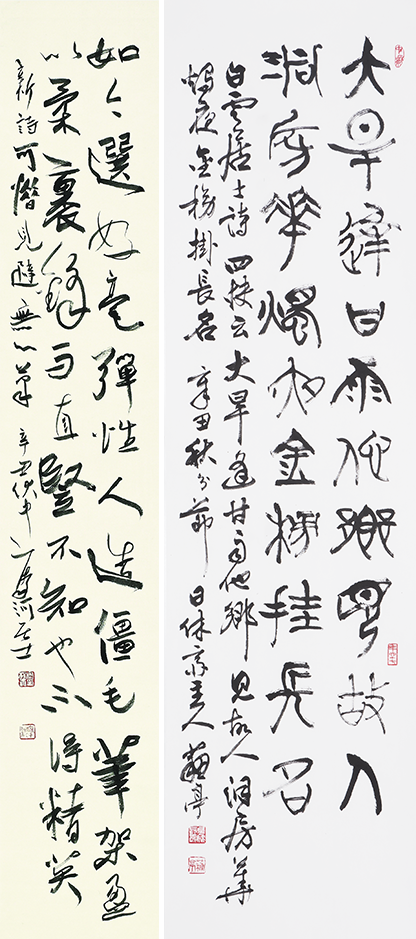 大旱逢甘雨他鄉見故人
洞房華燭夜金榜挂長名
白雲居士詩四捷云大旱逢甘雨他鄉見故人洞房華
燭夜金榜掛長名辛丑秋分節日休齋主人
如今選好毫彈性人造僵毛筆架盈
以柔裹鋒直豎不知也不得精英
新詩可惜見避無筆辛丑伏中河居士